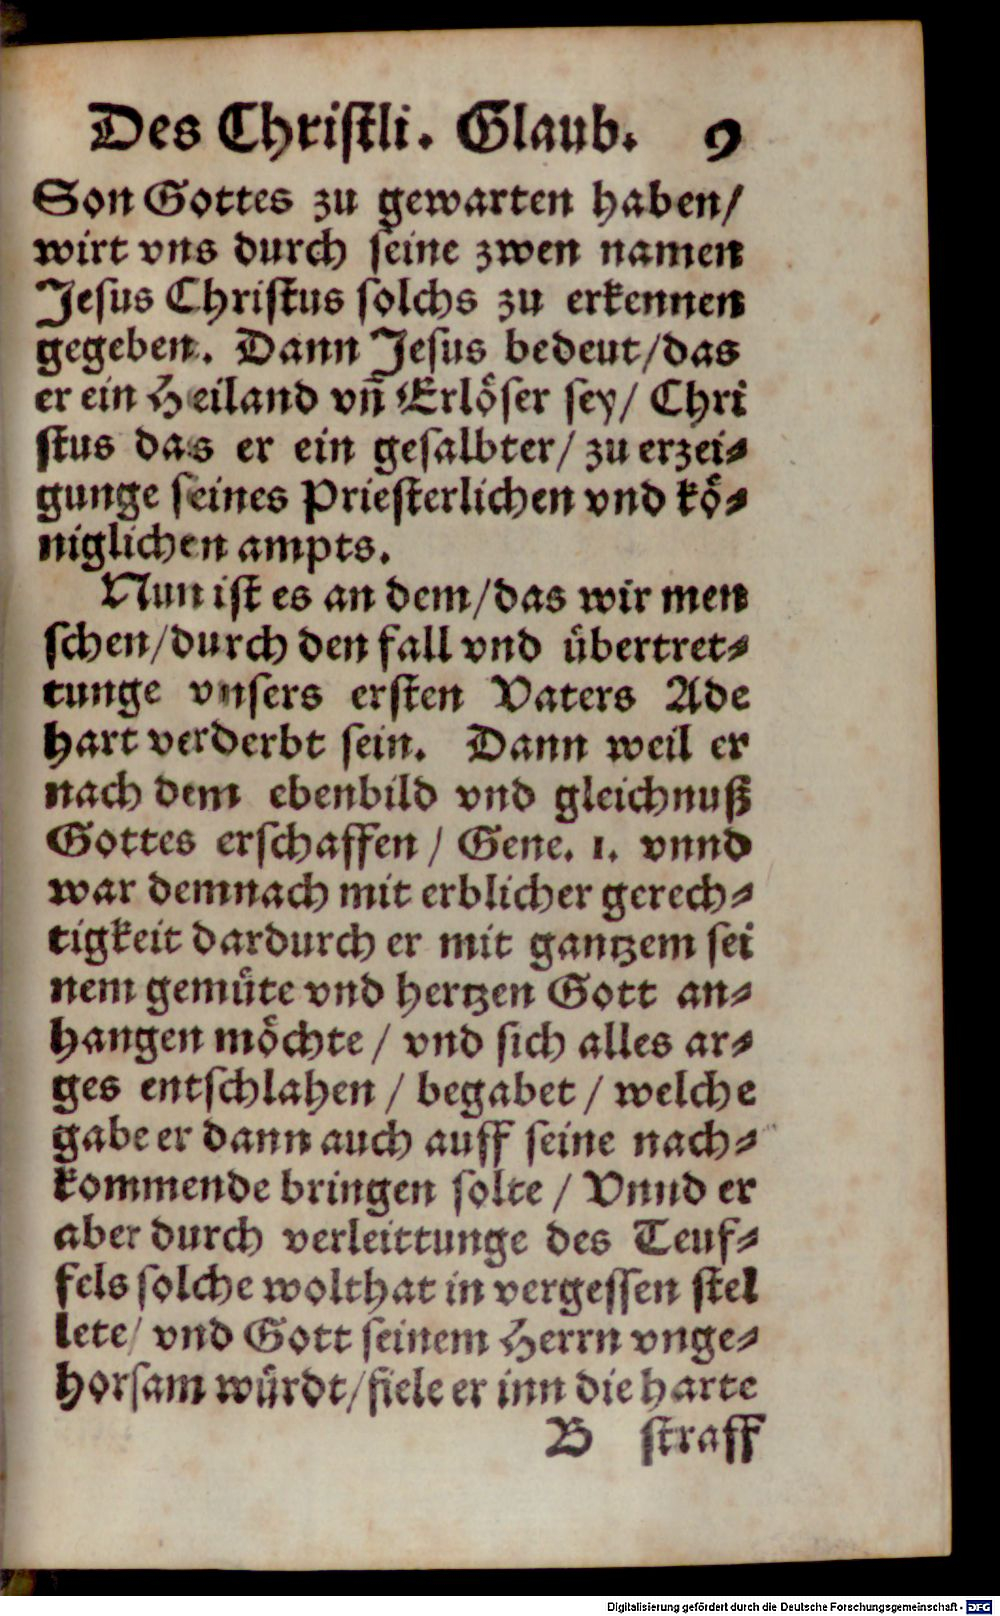 Des Christli. Glaub. 9
Son Gottes zu gewarten haben/
wirt vns durch seine zwen namen
Jesus Christus solchs zu erkennen
gegeben. Dann Jesus bedeut/das
er ein Heiland vñ Erlöser sey/ Chri
stus das er ein gesalbter/ zu erzei⸗
gunge seines Priesterlichen vnd kö⸗
niglichen ampts.
Nun ist es an dem/das wir men
schen/durch den fall vnd übertret⸗
tunge vnsers ersten Vaters Ade
hart verderbt sein. Dann weil er
nach dem ebenbild vnd gleichnuß
Gottes erschaffen / Gene. 1. vnnd
war demnach mit erblicher gerech⸗
tigkeit dardurch er mit gantzem sei
nem gemüte vnd hertzen Gott an⸗
hangen möchte / vnd sich alles ar⸗
ges entschlahen / begabet / welche
gabe er dann auch auff seine nach⸗
kommende bringen solte / Vnnd er
aber durch verleittunge des Teuf⸗
fels solche wolthat in vergessen stel
lete/ vnd Gott seinem Herrn vnge⸗
horsam würdt/fiele er inn die harte
B straff
Digitalisierung gefördert durch die Deutsche Forschungsgemeinschaft - DFG